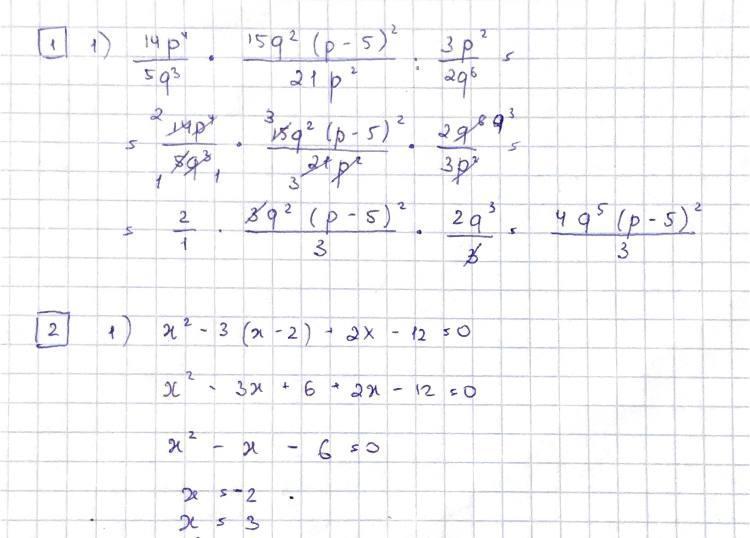 1 1) 14p⁴/5q³ · 15q² (p - 5)²/21p² : 3p²/2q⁶ =
= 2 14p⁴/1 5q³ 1 · 3 15q² (p - 5)²/3 21p² · 2q⁶ q³/3p² =
= 2/1 · 3q² (p - 5)²/3 · 2q³/3 = 4q⁵ (p - 5)²/3
2 1) x² - 3 (x - 2) + 2x - 12 = 0
x² - 3x + 6 + 2x - 12 = 0
x² - x - 6 = 0
x = -2
x = 3